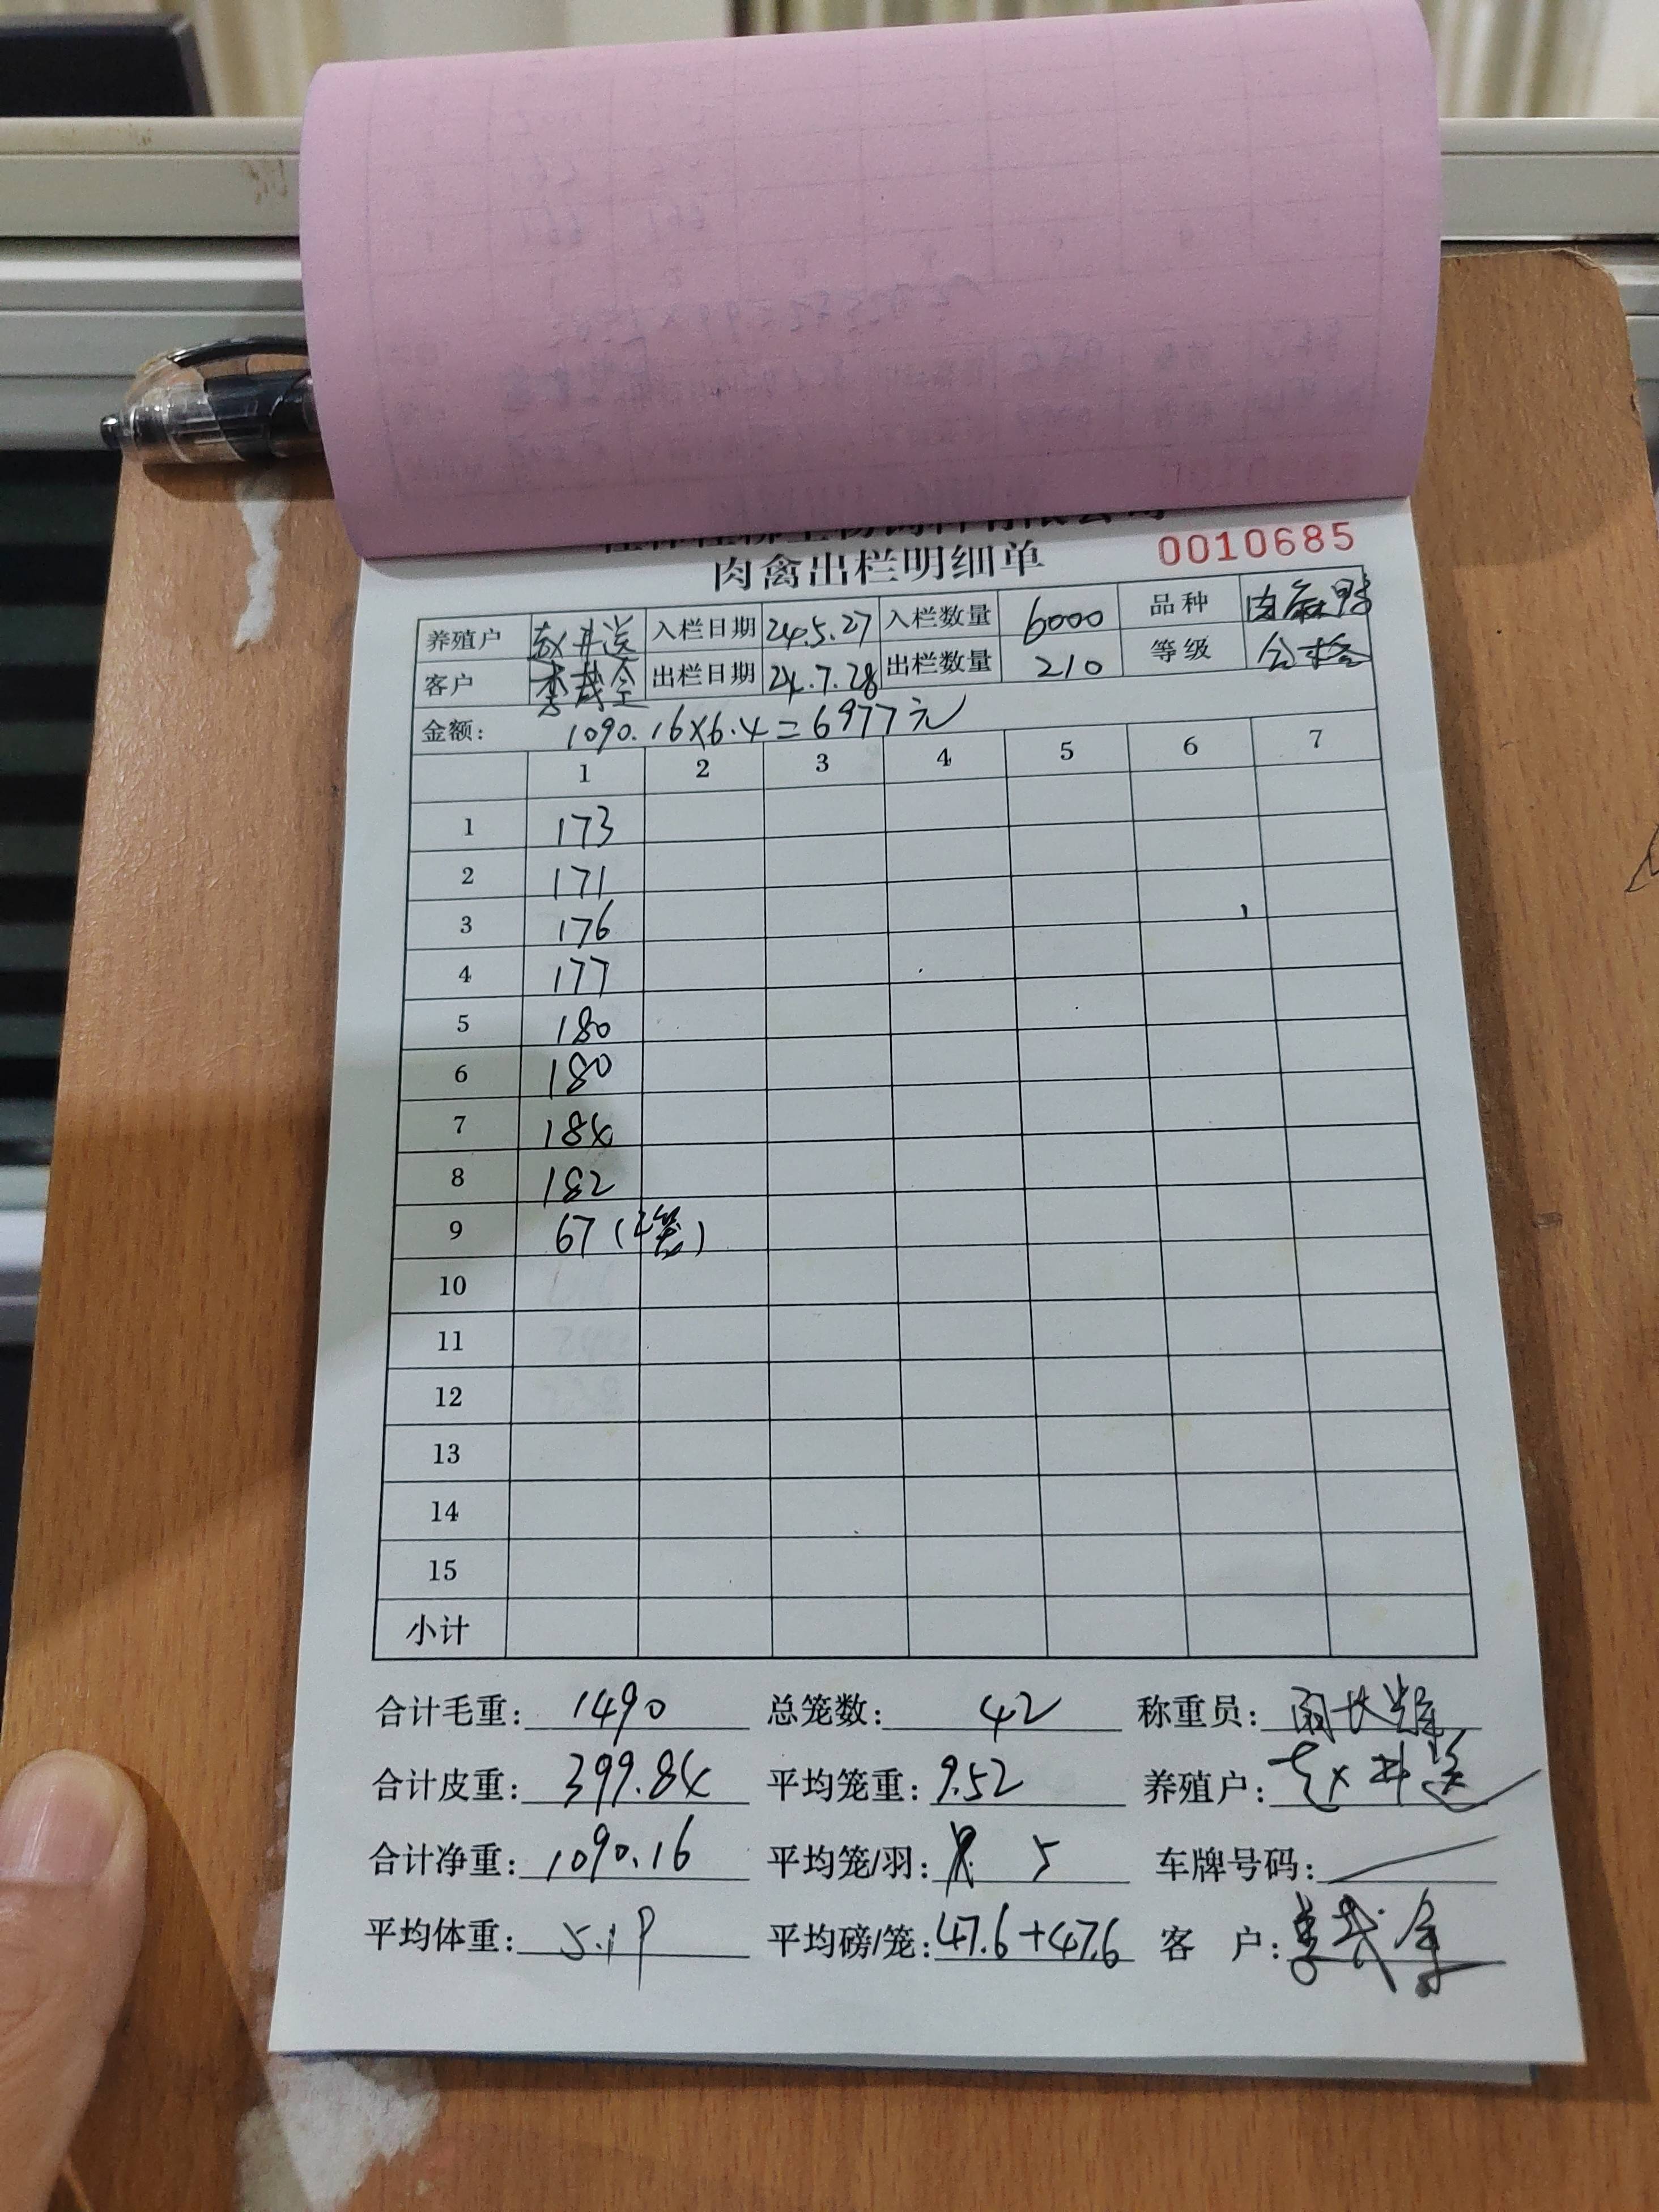 肉禽出栏明细单 0010685
养殖户 赵井送 入栏日期 24.5.27 入栏数量 6000 品种 肉麻鸭
客户 李武全 出栏日期 24.7.28 出栏数量 210 等级 合格
金额: 1090.16×6.4=6977元
1 2 3 4 5 6 7
1 173
2 171
3 176
4 177
5 180
6 180
7 184
8 182
9 67(2笼)
10
11
12
13
14
15
小计
合计毛重: 1490 总笼数: 42 称重员:
合计皮重: 399.84 平均笼重: 9.52 养殖户: 赵井送
合计净重: 1090.16 平均笼/羽: 5 车牌号码:
平均体重: 5.19 平均磅/笼: 47.6+47.6 客 户: 李武全